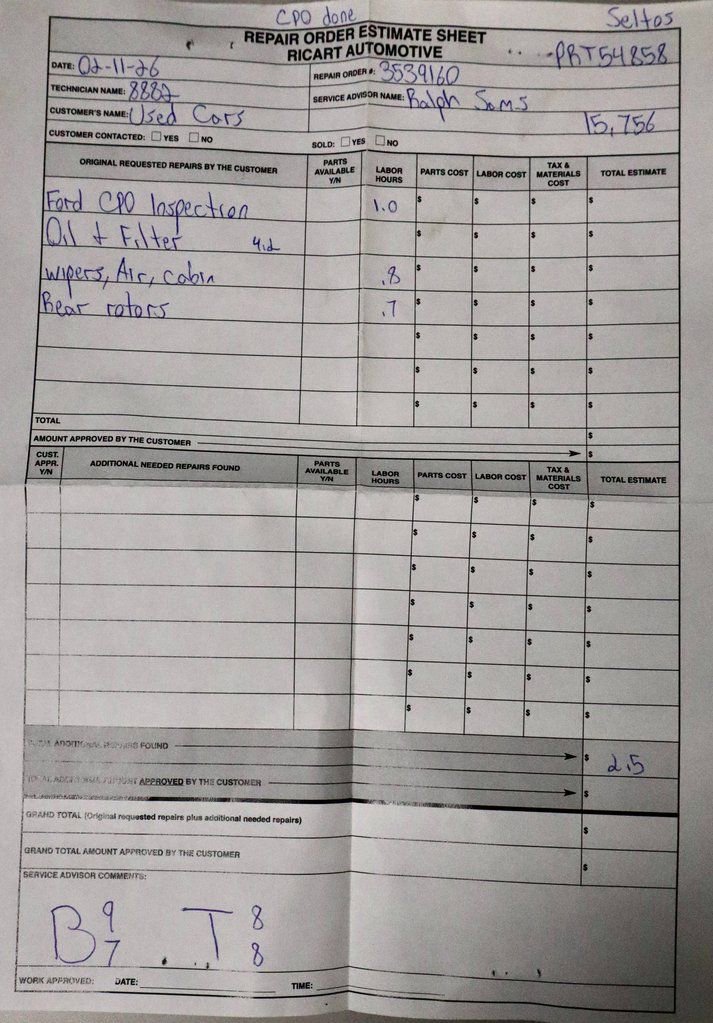 CPO done
Seltos
REPAIR ORDER ESTIMATE SHEET
RICART AUTOMOTIVE
PRT54858
DATE: 02-11-26
REPAIR ORDER #: 3539160
TECHNICIAN NAME: 8882
SERVICE ADVISOR NAME: Ralph Sams
CUSTOMER'S NAME: Used Cars
15,756
CUSTOMER CONTACTED: ☐ YES ☐ NO
SOLD: ☐ YES ☐ NO
ORIGINAL REQUESTED REPAIRS BY THE CUSTOMER PARTS AVAILABLE Y/N LABOR HOURS PARTS COST LABOR COST TAX & MATERIALS COST TOTAL ESTIMATE
Ford CPO Inspection 1.0 $ $ $ $
Oil + Filter 4.2 $ $ $ $
wipers, Air, cabin .8 $ $ $ $
Rear rotors .7 $ $ $ $
$ $ $ $
$ $ $ $
$ $ $ $
TOTAL $
AMOUNT APPROVED BY THE CUSTOMER $
CUST. APPR. Y/N ADDITIONAL NEEDED REPAIRS FOUND PARTS AVAILABLE Y/N LABOR HOURS PARTS COST LABOR COST TAX & MATERIALS COST TOTAL ESTIMATE
$ $ $ $
$ $ $ $
$ $ $ $
$ $ $ $
$ $ $ $
$ $ $ $
$ $ $ $
TOTAL ADDITIONAL REPAIRS FOUND $ 2.5
TOTAL ADDITIONAL AMOUNT APPROVED BY THE CUSTOMER $
GRAND TOTAL (Original requested repairs plus additional needed repairs) $
GRAND TOTAL AMOUNT APPROVED BY THE CUSTOMER $
SERVICE ADVISOR COMMENTS:
B 9 7 T 8 8
WORK APPROVED: DATE: TIME: